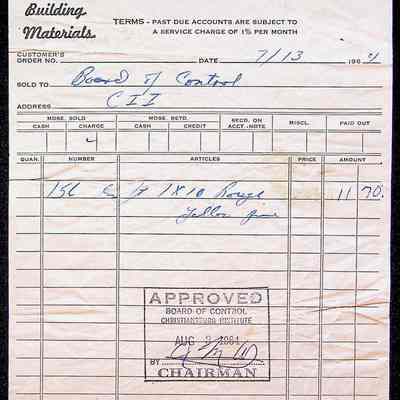 Building
Materials.
TERMS - PAST DUE ACCOUNTS ARE SUBJECT TO
A SERVICE CHARGE OF 1% PER MONTH
CUSTOMER'S
ORDER NO. DATE 7/13 1964
SOLD TO Board of Control
ADDRESS C I I
MDSE. SOLD MDSE. RETD. RECD. ON MISCL. PAID OUT
CASH CHARGE CASH CREDIT ACCT.-NOTE
QUAN. NUMBER ARTICLES PRICE AMOUNT
156 ft 1X10 Rough 11 70
Yellow pine
APPROVED
BOARD OF CONTROL
CHRISTIANSBURG INSTITUTE
AUG 3 1964
BY
CHAIRMAN